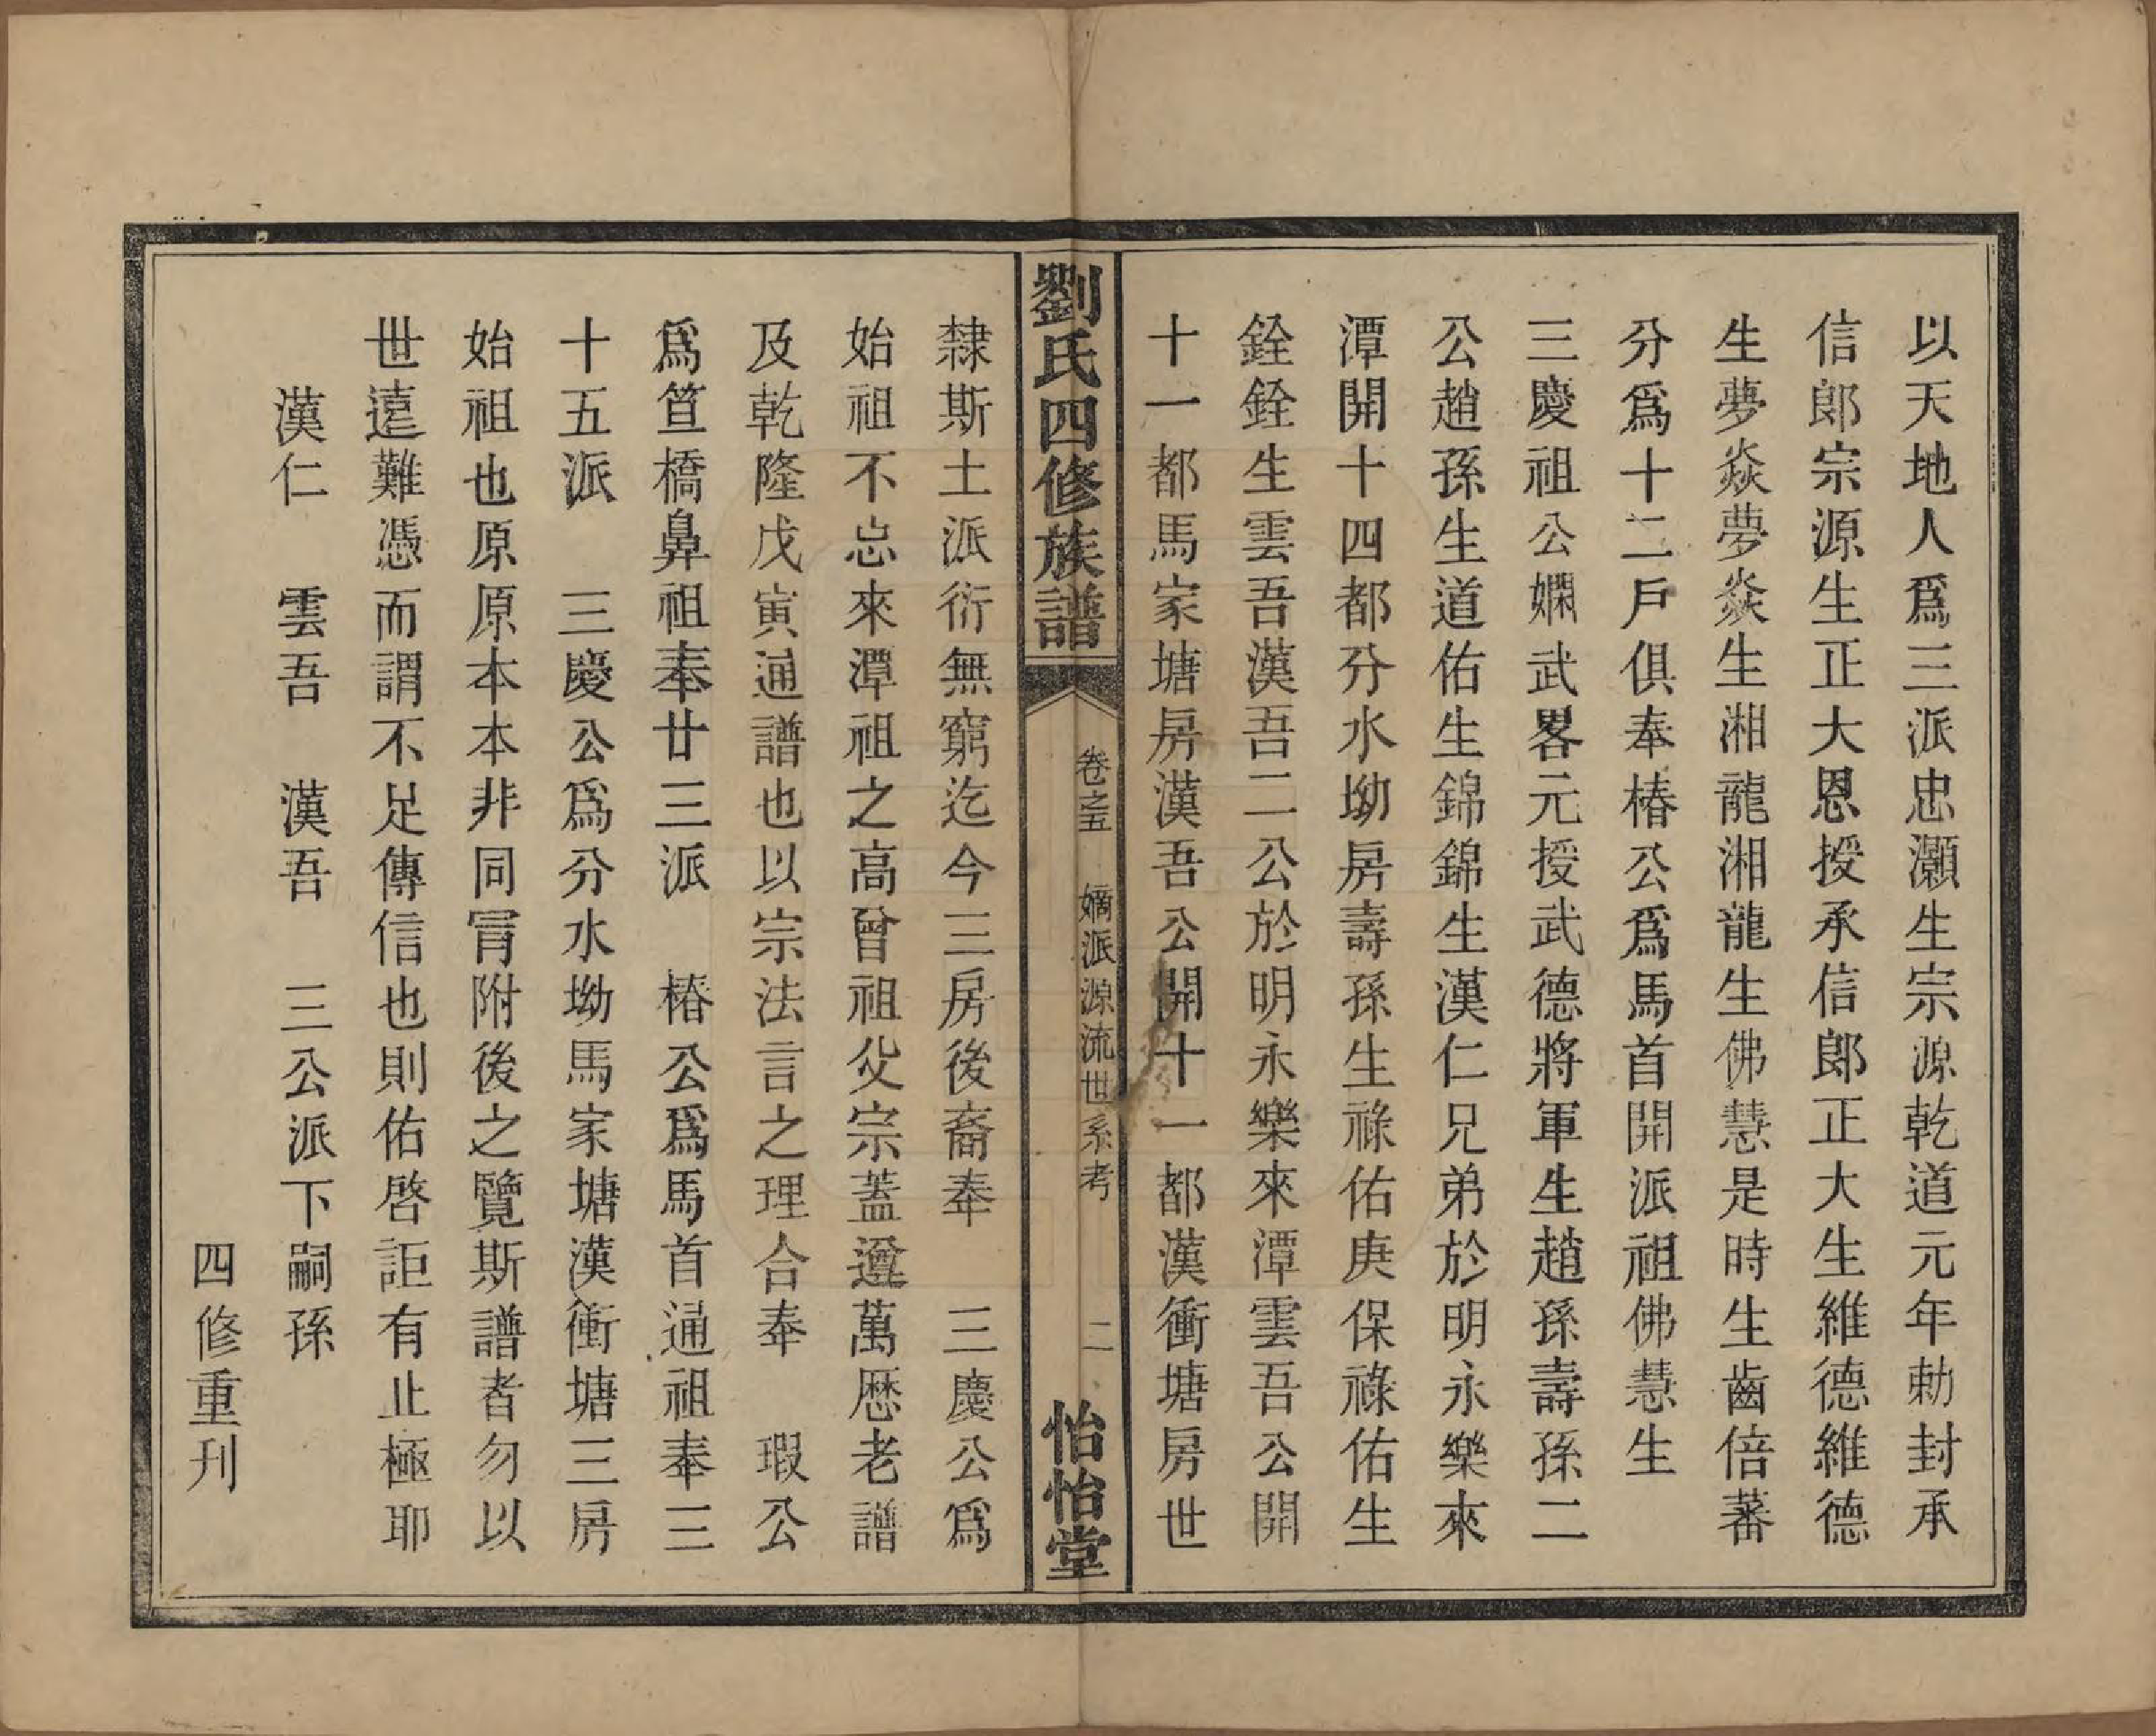 以天地人爲三派忠灝生宗源乾道元年勅封承
信郎宗源生正大恩授承信郎正大生維德維德
生夢焱夢焱生湘龍湘龍生佛慧是時生齒倍蕃
分爲十二戶俱奉椿公爲馬首開派祖佛慧生
三慶祖公嫻武畧元授武德將軍生趙孫壽孫二
公趙孫生道佑生錦錦生漢仁兄弟於明永樂來
潭開十四都分水坳房壽孫生祿佑庚保祿佑生
銓銓生雲吾漢吾二公於明永樂來潭雲吾公開
十一都馬家塘房漢吾公開十一都漢衝塘房世
劉氏四修族譜 卷之五 嫡派源流世系考 二 怡怡堂
隸斯土派衍無窮迄今三房後裔奉 三慶公爲
始祖不忘來潭祖之高曾祖父宗蓋遵萬歷老譜
及乾隆戊寅通譜也以宗法言之理合奉 瑕公
爲笪橋鼻祖奉廿三派 椿公爲馬首通祖奉三
十五派 三慶公爲分水坳馬家塘漢衝塘三房
始祖也原原本本非同冐附後之覽斯譜者勿以
世遠難憑而謂不足傳信也則佑啓詎有止極耶
漢仁 雲吾 漢吾 三公派下嗣孫
四修重刊